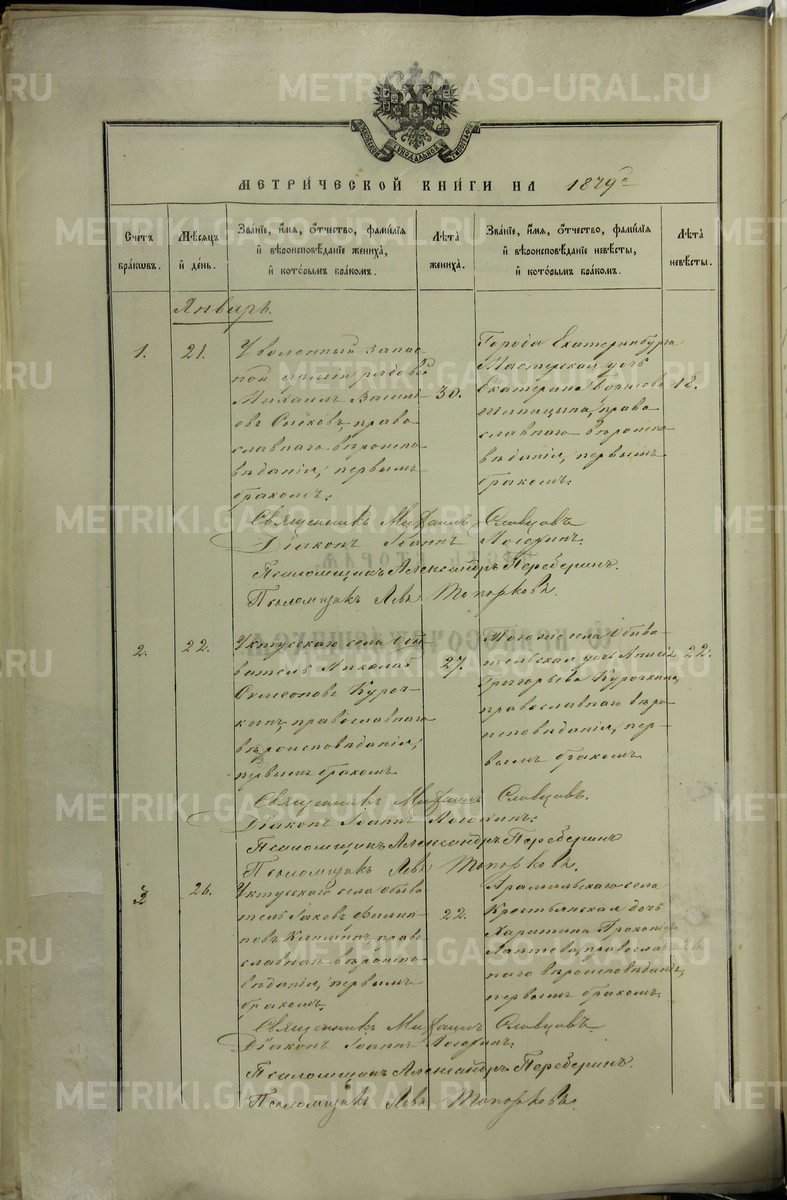 МЕТРИ́ЧЕСКОЙ КНИ́ГИ НА 1879 г.
Счетъ бра́кѡвъ.
Мѣ́сѧцъ и҆ де́нь.
Зва́нїе, и҆́мѧ, ѻ҆́тчество, фами́лїѧ и҆ вѣроисповѣ́данїе жениха̀, и҆ кото́рымъ бра́комъ.
Лѣ́та жениха̀.
Зва́нїе, и҆́мѧ, ѻ҆́тчество, фами́лїѧ и҆ вѣроисповѣ́данїе невѣ́сты, и҆ кото́рымъ бра́комъ.
Лѣ́та невѣ́сты.
Январь.
1.
21.
Уволенный запас-
ной арміи рядовой
Михаилъ Василь-
овъ право-
славнаго вѣроиспо-
вѣданія, первымъ
бракомъ.
30.
Города Екатеринбурга
Мастерская дочь
Екатерина
право-
славнаго вѣроиспо-
вѣданія, первымъ
бракомъ.
18.
Священникъ Михаилъ Словцовъ
Діаконъ Іоаннъ
Псаломщикъ Александръ Переберинъ.
Псаломщикъ Левъ Топорковъ.
2.
22.
Уктусскаго села Обы-
ватель Николай
Симеоновъ Куроч-
кинъ, православнаго
вѣроисповѣданія,
первымъ бракомъ
27.
Тогоже села Обыва-
тельская дочь
Григорьева Курочкина,
православнаго вѣро-
исповѣданія, пер-
вымъ бракомъ.
22.
Священникъ Михаилъ Словцовъ.
Діаконъ Іоаннъ
Псаломщикъ Александръ Переберинъ
Псаломщикъ Левъ Топорковъ.
3
26.
Уктусскаго села обыва-
тель Іаковъ Филип-
повъ право-
славнаго вѣроиспо-
вѣданія, первымъ
бракомъ.
22.
Арамильскаго села
Крестьянская дочь
Харитина Прокопьева
Лаптева, православ-
наго вѣроисповѣданія,
первымъ бракомъ.
Священникъ Михаилъ Словцовъ.
Діаконъ Іоаннъ
Псаломщикъ Александръ Переберинъ.
Псаломщикъ Левъ Топорковъ.
METRIKI.GASO-URAL.RU